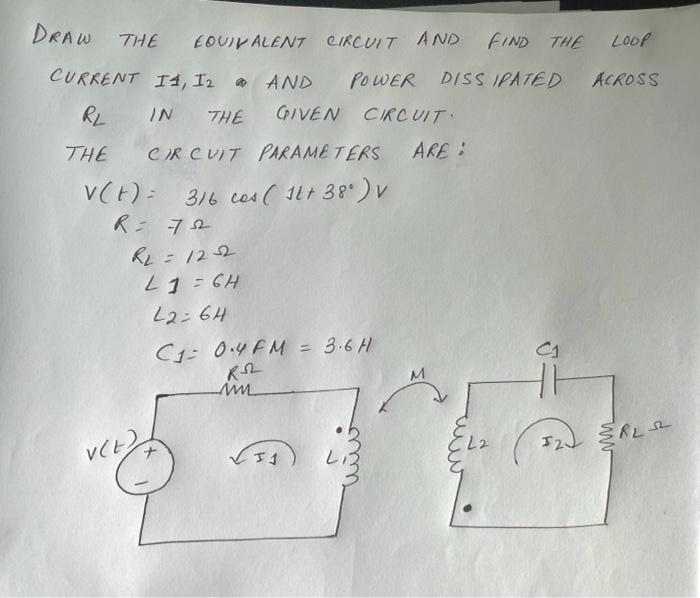 DRAW THE EQUIVALENT CIRCUIT AND FIND THE LOOP
CURRENT I1, I2 AND POWER DISSIPATED ACROSS
RL IN THE GIVEN CIRCUIT.
THE CIRCUIT PARAMETERS ARE:
V(t)= 316 cos(1t+38°)V
R= 7Ω
RL=12Ω
L1=6H
L2=6H
C1= 0.4FM = 3.6H
RΩ
M
C1
V(t)
+
-
I1
L1
L2
I2
RLΩ